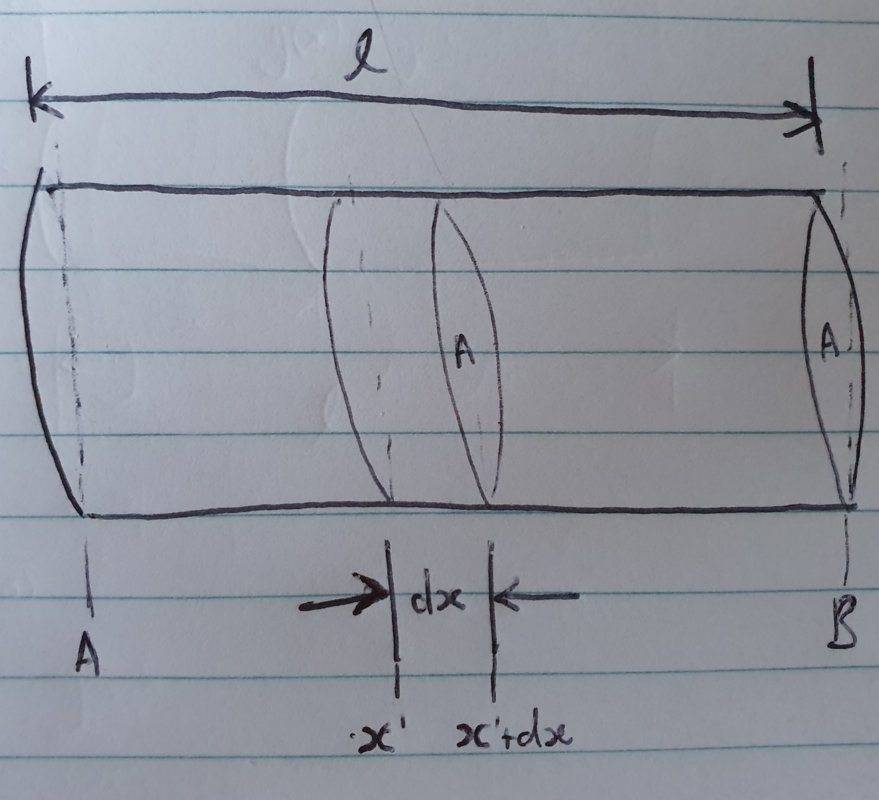 l
A A
dx
A B
x' x'+dx